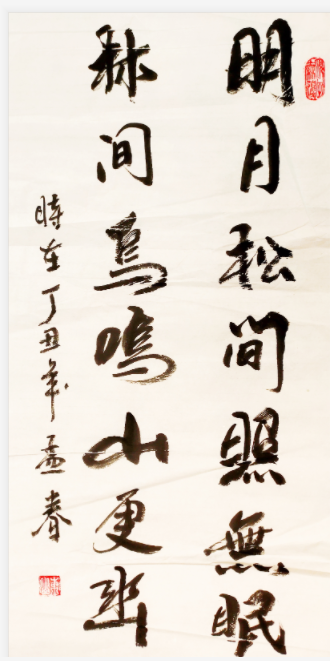 明月松間照無眠
林间鳥鳴山更幽
時在丁丑年孟春